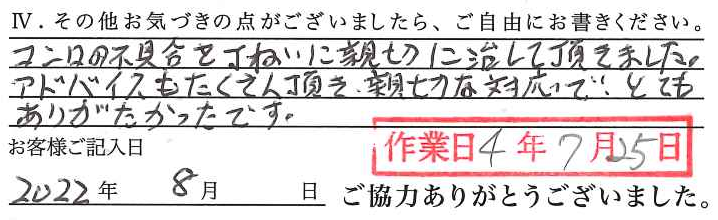 Ⅳ．その他お気づきの点がございましたら、ご自由にお書きください。
コンロの不具合を丁ねいに親切に治して頂きました。
アドバイスもたくさん頂き、親切な対応で、とても
ありがたかったです。
お客様ご記入日
作業日4年7月25日
2022年 8月 日 ご協力ありがとうございました。